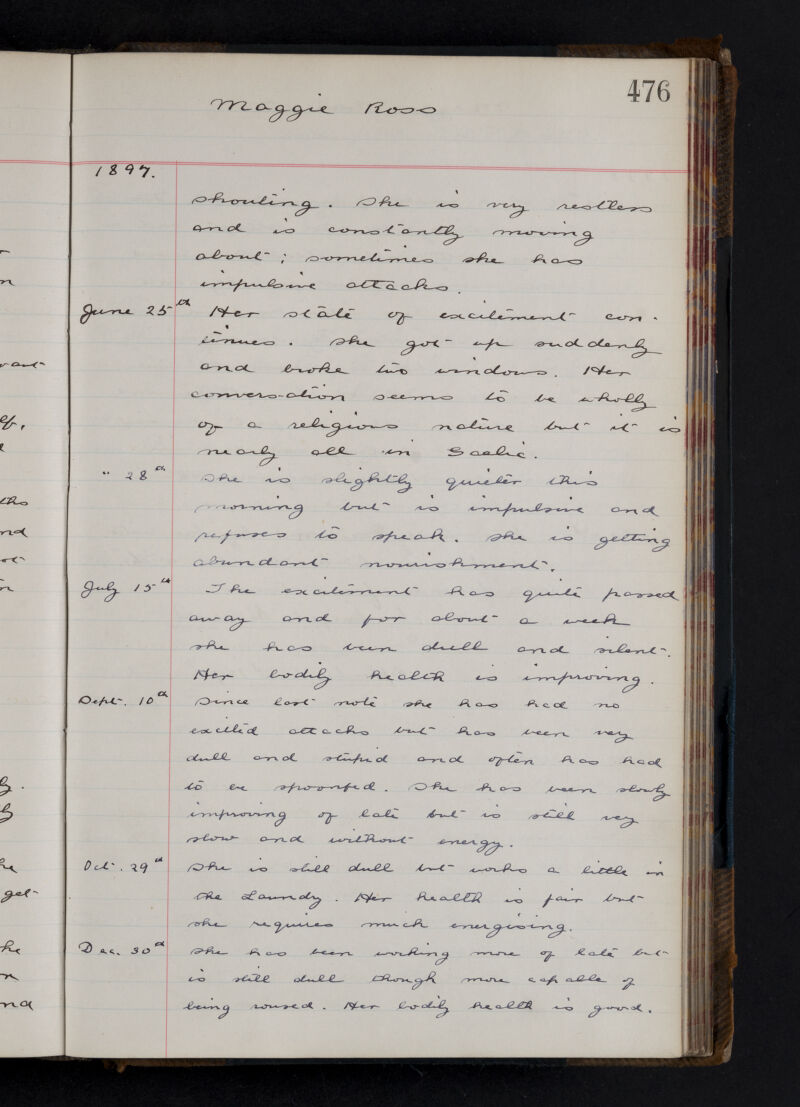 476
Maggie Ross
1897.
shouting. She is very restless
and is constantly moving
about; sometimes she has
impulsive attacks.
June 25th Her state of excitement con-
tinues. She got up suddenly
and broke two windows. Her
conversation seems to be wholly
of a religious nature but it is
nearly all in Gaelic.
" 28th She is slightly quieter this
morning but is impulsive and
refuses to speak. She is getting
abundant nourishment.
July 15th The excitement has quite passed
away and for about a week
she has been dull and silent.
Her bodily health is improving.
Sept. 10th Since last note she has had no
excited attacks but has been very
dull and stupid and often has had
to be spoonfed. She has been slowly
improving of late but is still very
slow and without energy.
Oct. 29th She is still dull but works a little in
the Laundry. Her health is fair but
she requires much energising.
Dec. 30th She has been working more of late but
is still dull though more capable of
being roused. Her bodily health is good.